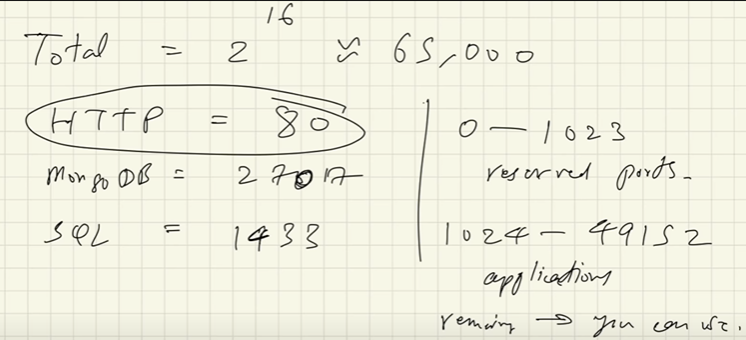 Total = 2^16 ≈ 65,000
HTTP = 80
MongoDB = 27017
SQL = 1433
0 — 1023
reserved ports.
1024 — 49152
applications
remaing → you can use.